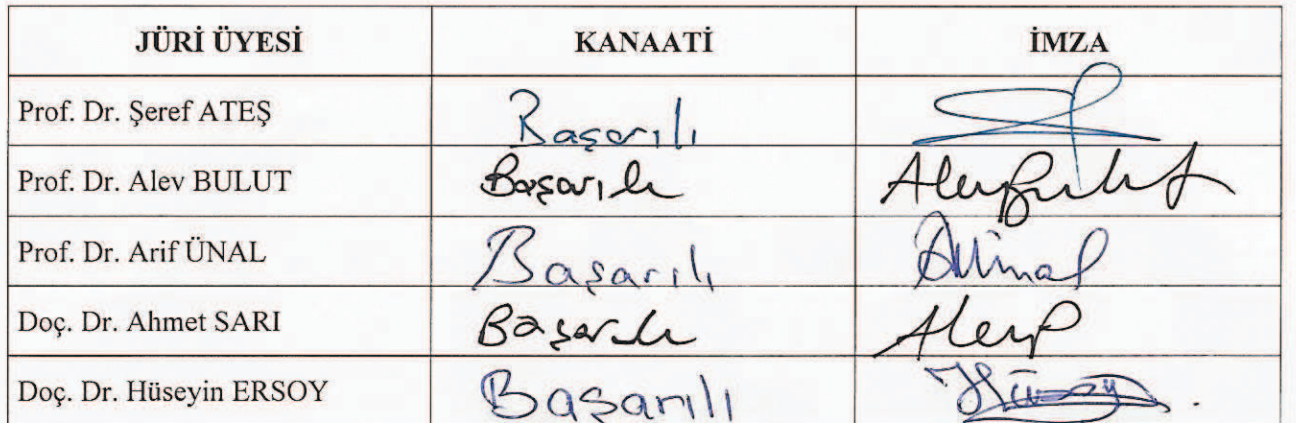 JÜRİ ÜYESİ KANAATİ İMZA
Prof. Dr. Şeref ATEŞ Başarılı
Prof. Dr. Alev BULUT Başarılı Alev Bulut
Prof. Dr. Arif ÜNAL Başarılı AÜnal
Doç. Dr. Ahmet SARI Başarılı
Doç. Dr. Hüseyin ERSOY Başarılı